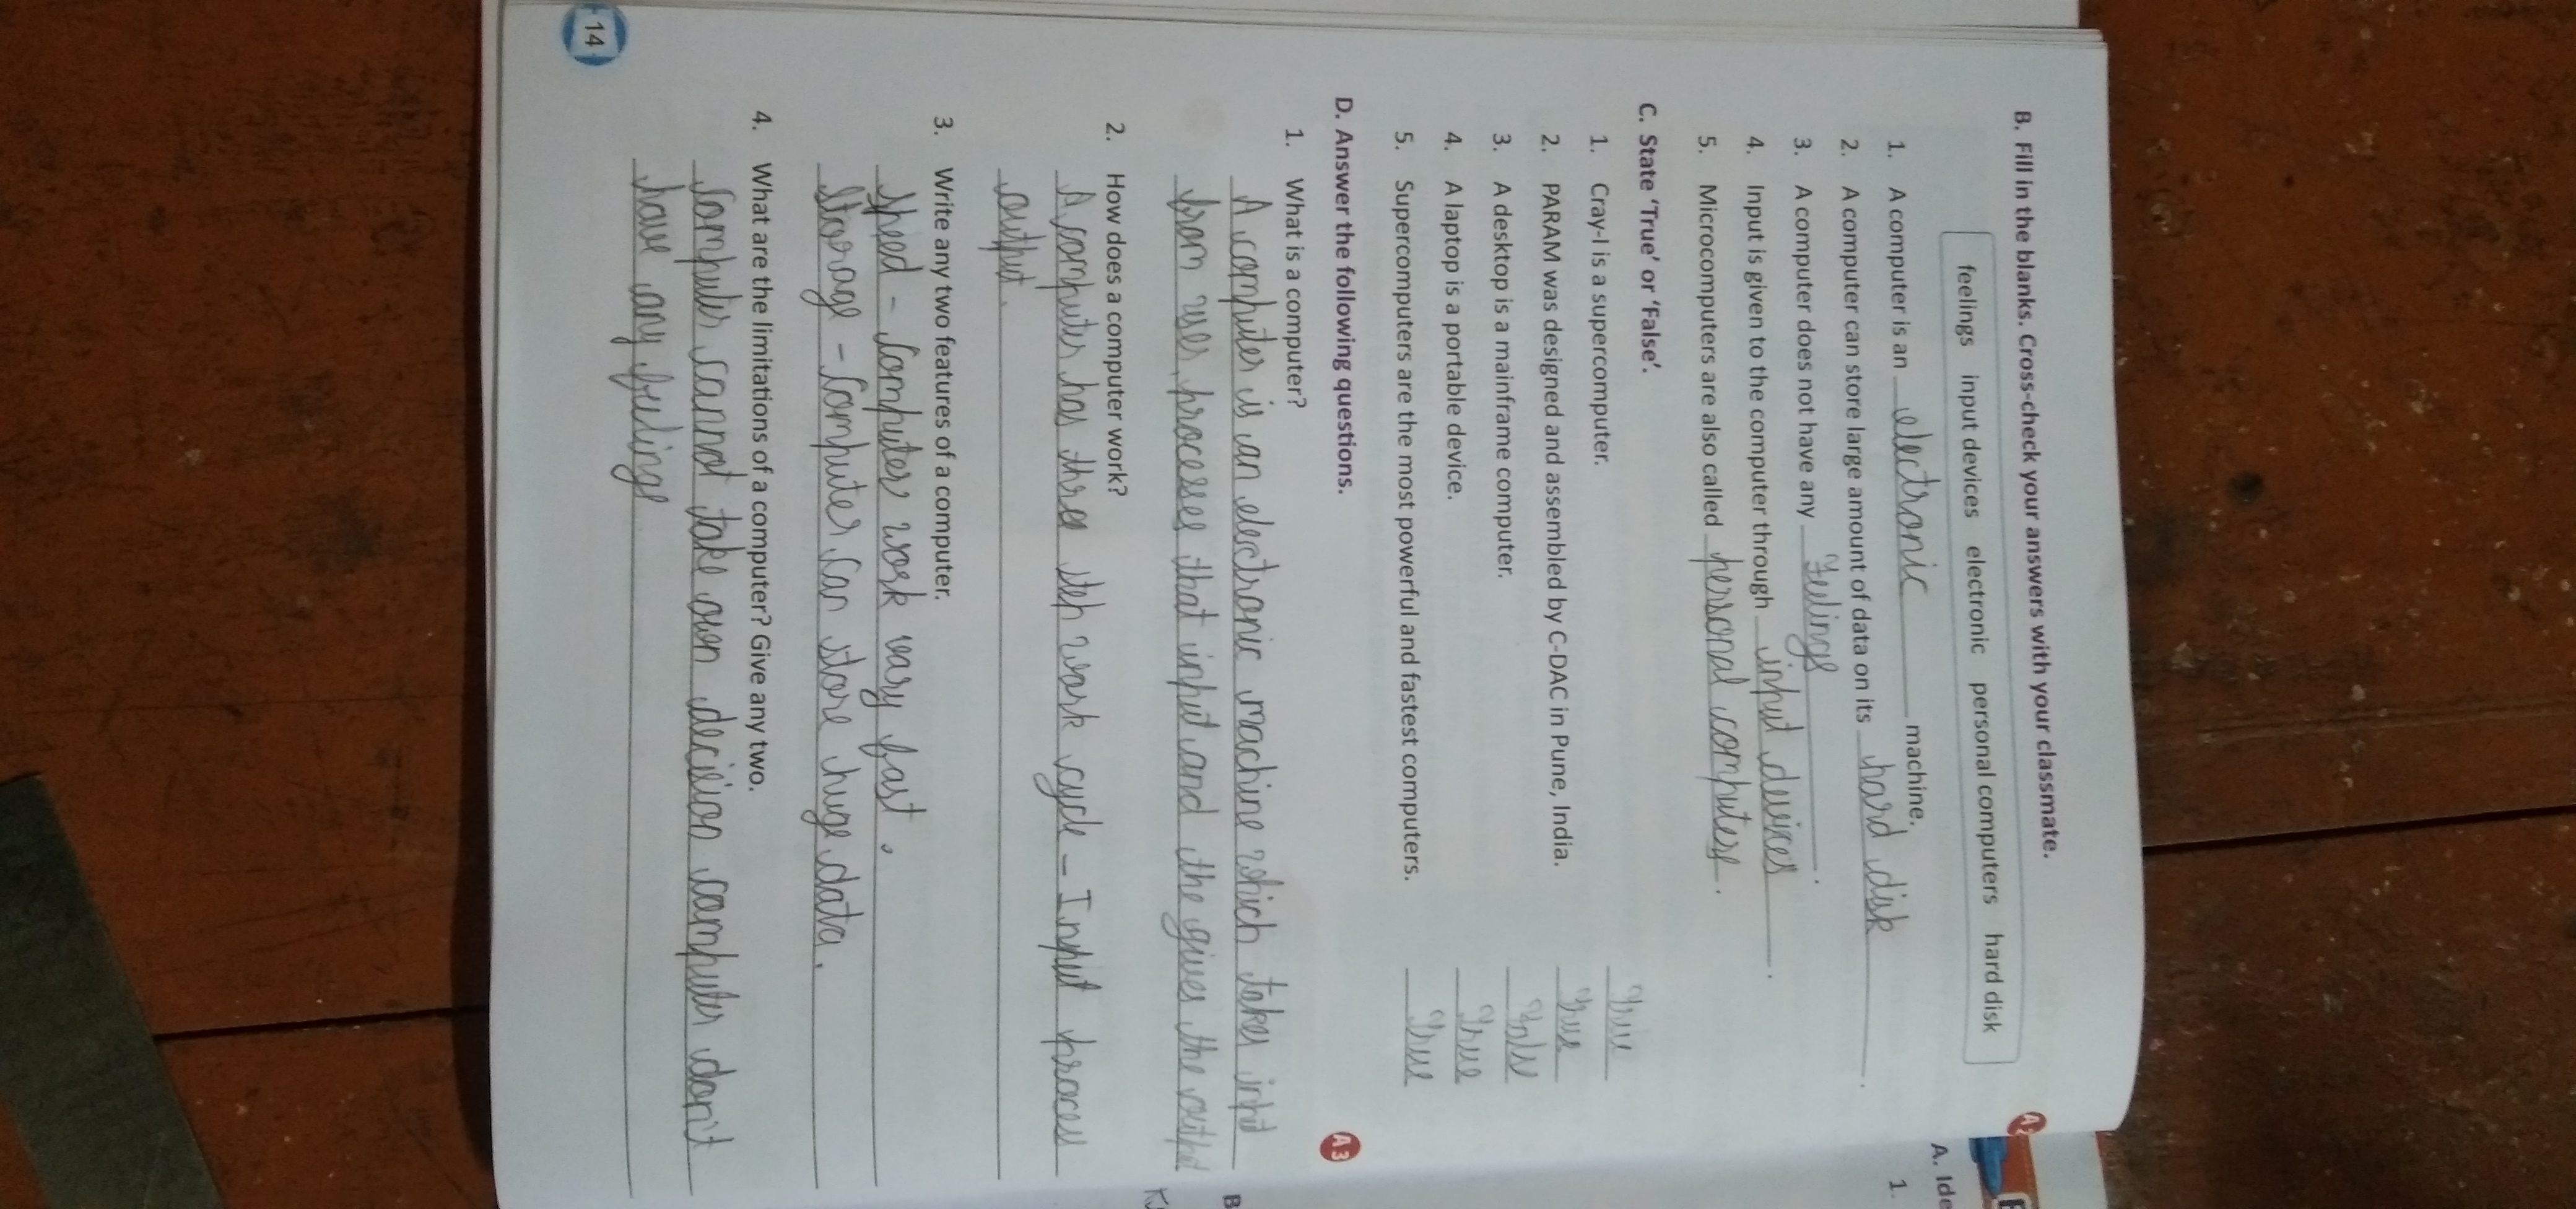 B. Fill in the blanks. Cross-check your answers with your classmate.
feelings input devices electronic personal computers hard disk
1. A computer is an electronic machine.
2. A computer can store large amount of data on its hard disk.
3. A computer does not have any Feelings.
4. Input is given to the computer through input devices.
5. Microcomputers are also called personal computers.
C. State 'True' or 'False'.
1. Cray-I is a supercomputer. True
2. PARAM was designed and assembled by C-DAC in Pune, India. True
3. A desktop is a mainframe computer.
4. A laptop is a portable device. True
5. Supercomputers are the most powerful and fastest computers. True
D. Answer the following questions. A 3
1. What is a computer?
A computer is an electronic machine which takes input
from user, processes that input and the gives the output
2. How does a computer work?
A computer has three step work cycle - Input process
output.
3. Write any two features of a computer.
Speed - Computer work vary fast.
Storage - Computer can store huge data.
4. What are the limitations of a computer? Give any two.
Computer cannot take own decision computer don't
have any feelings
14
A. Ide
1.
B